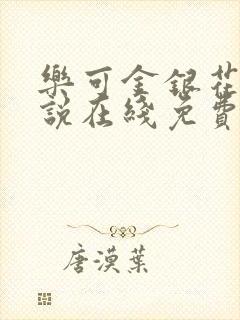 樂可金銀花
說在綫免費
唐漠葉